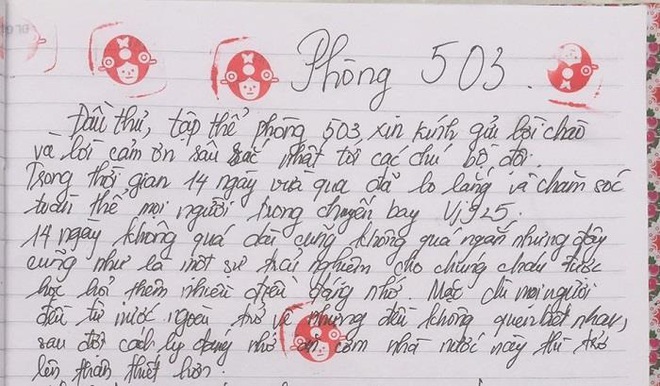 Phòng 503.
Đầu thư, tập thể phòng 503 xin kính gửi lời chào
và lời cảm ơn sâu sắc nhất tới các chú bộ đội.
Trong thời gian 14 ngày vừa qua đã lo lắng và chăm sóc
toàn thể mọi người trong chuyến bay Vj925.
14 ngày không quá dài cũng không quá ngắn nhưng đây
cũng như là một sự trải nghiệm cho chúng cháu được
học hỏi thêm nhiều điều đáng nhớ. Mặc dù mọi người
đều từ nước ngoài trở về nhưng đều không quen biết nhau,
sau đợt cách ly đáng nhớ ăn cơm nhà nước này thì trở
lên thân thiết hơn.